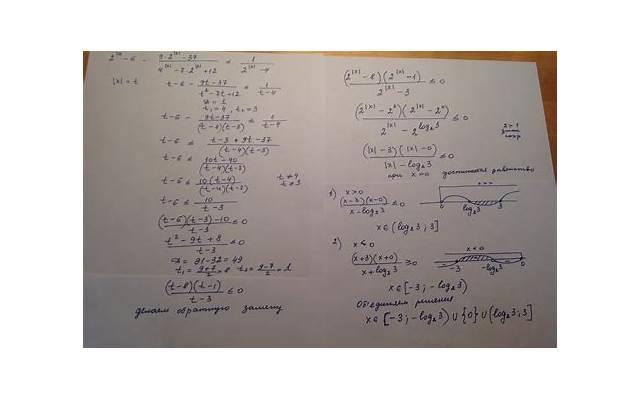 2^|x| − 6 − (9·2^|x| − 37)/(4^|x| − 7·2^|x| + 12) ≤ 1/(2^|x| − 4)
|x| = t
t−6 − (9t−37)/(t²−7t+12) ≤ 1/(t−4)
D = 1
t₁ = 4, t₂ = 3
t−6 − (9t−37)/((t−4)(t−3)) ≤ 1/(t−4)
t−6 ≤ (t−3+9t−37)/((t−4)(t−3))
t−6 ≤ (10t−40)/((t−4)(t−3))
t−6 ≤ 10(t−4)/((t−4)(t−3)) t≠4 t≠3
t−6 ≤ 10/(t−3)
((t−6)(t−3)−10)/(t−3) ≤ 0
(t²−9t+8)/(t−3) ≤ 0
D = 81−32 = 49
t₁ = (9+7)/2 = 8 t₂ = (9−7)/2 = 1
(t−8)(t−1)/(t−3) ≤ 0
делаем обратную замену
(2^|x| − 8)(2^|x| − 1)/(2^|x| − 3) ≤ 0
(2^|x| − 2³)(2^|x| − 2⁰)/(2^|x| − 2^(log₂3)) ≤ 0
2 > 1
знак
сохр
(|x|−3)(|x|−0)/(|x|−log₂3) ≤ 0
при x=0 достигается равенство
1) x>0
(x−3)(x−0)/(x−log₂3) ≤ 0
x>0
0 log₂3 3
x∈(log₂3; 3]
2) x≤0
(x+3)(x+0)/(x+log₂3) ≥ 0
x<0
−3 −log₂3 0
x∈[−3; −log₂3)
Объединяем решения
x∈[−3; −log₂3) ∪ {0} ∪ (log₂3; 3]